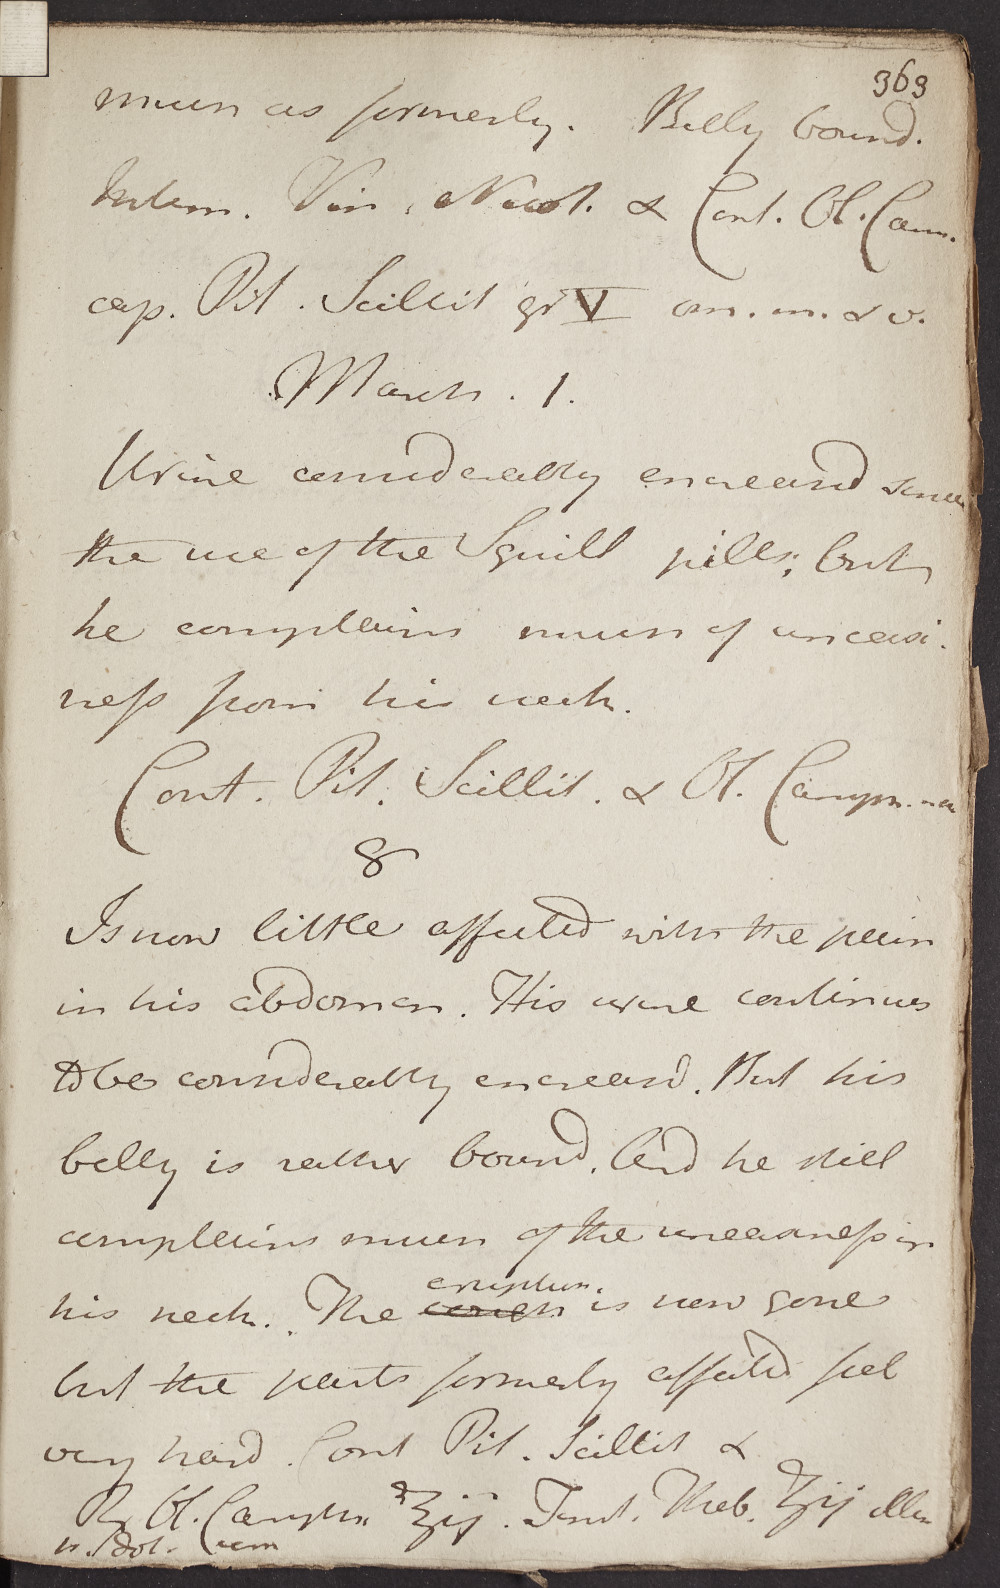 363
much as formerly. Belly bound.
Interm. Vin. Nicot. & Cont. Ol. Cam.
cap. Pil. Scillit gr V om. m. & v.
March. 1.
Urine considerably encreased since
the use of the Squill pills; but
he complains much of uneasi-
ness from his neck.
Cont. Pil. Scillit. & Ol. Camph.
8
Is now little affected with the pain
in his abdomen. His urine continues
to be considerably encreasd. But his
belly is rather bound. And he still
complains much of the uneasiness in
his neck. The eruption is now gone
but the parts formerly affected feel
very hard. Cont Pil. Scillit &
℞ Ol. Camph. ℥ij. Tinct. Theb. ʒij